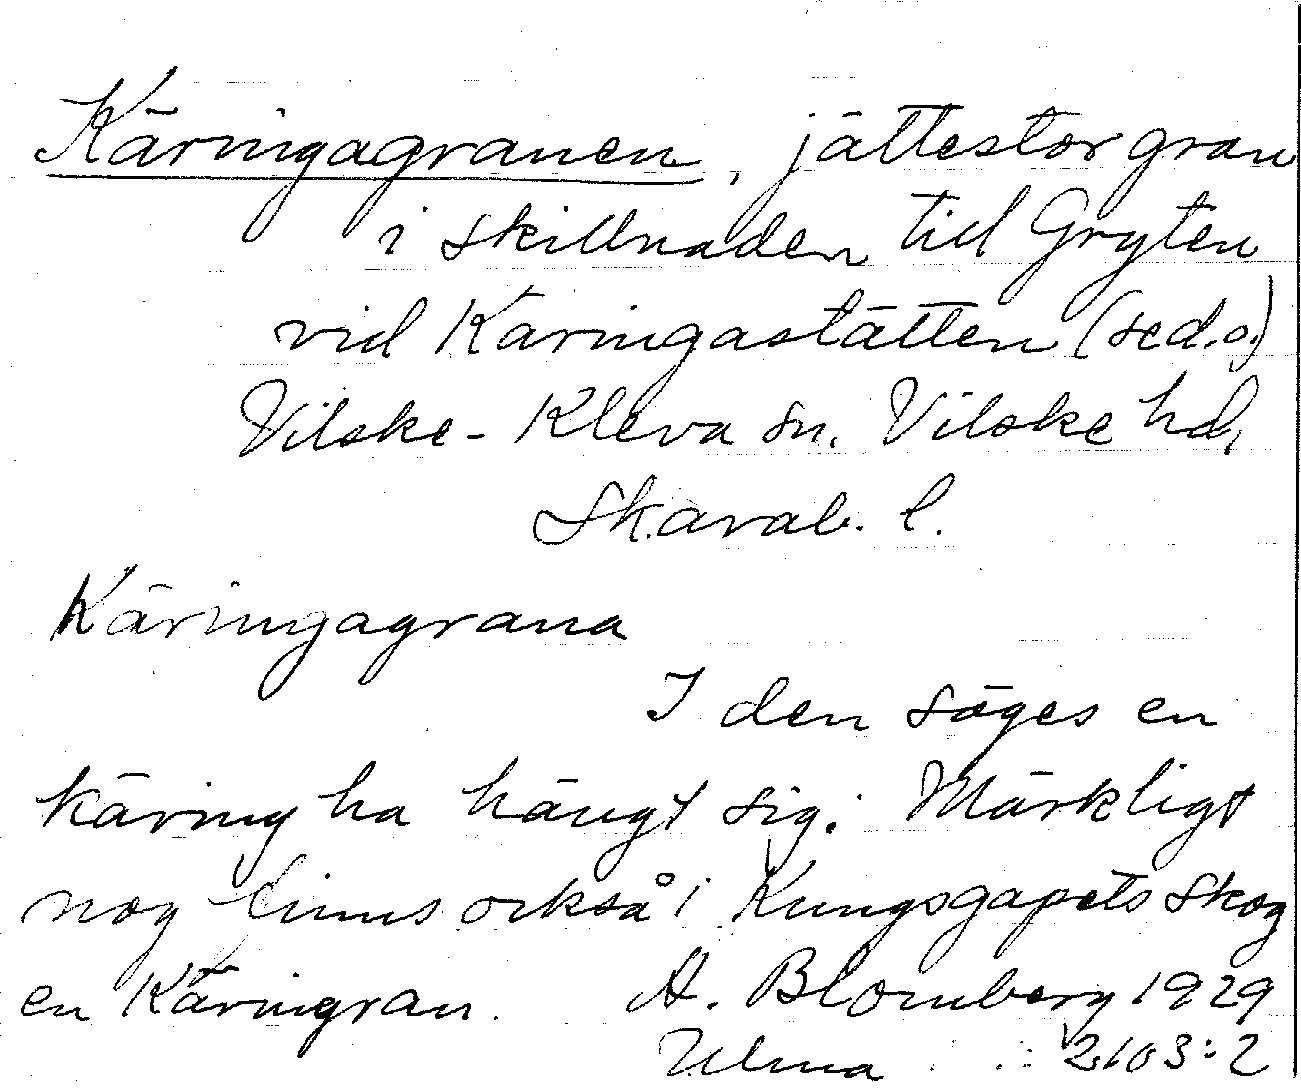 Käringagranen, jättestor gran
i skillnaden till Gryten
vid Käringastätten (se d.o.)
Vilske-Kleva sn. Vilske hd,
Skarab. l.
Käringagrana
I den säges en
käring ha hängt sig. Märkligt
nog finns också i Kungsgapets skog
en Käringran. A. Blomberg 1929
Ulma 2103:2